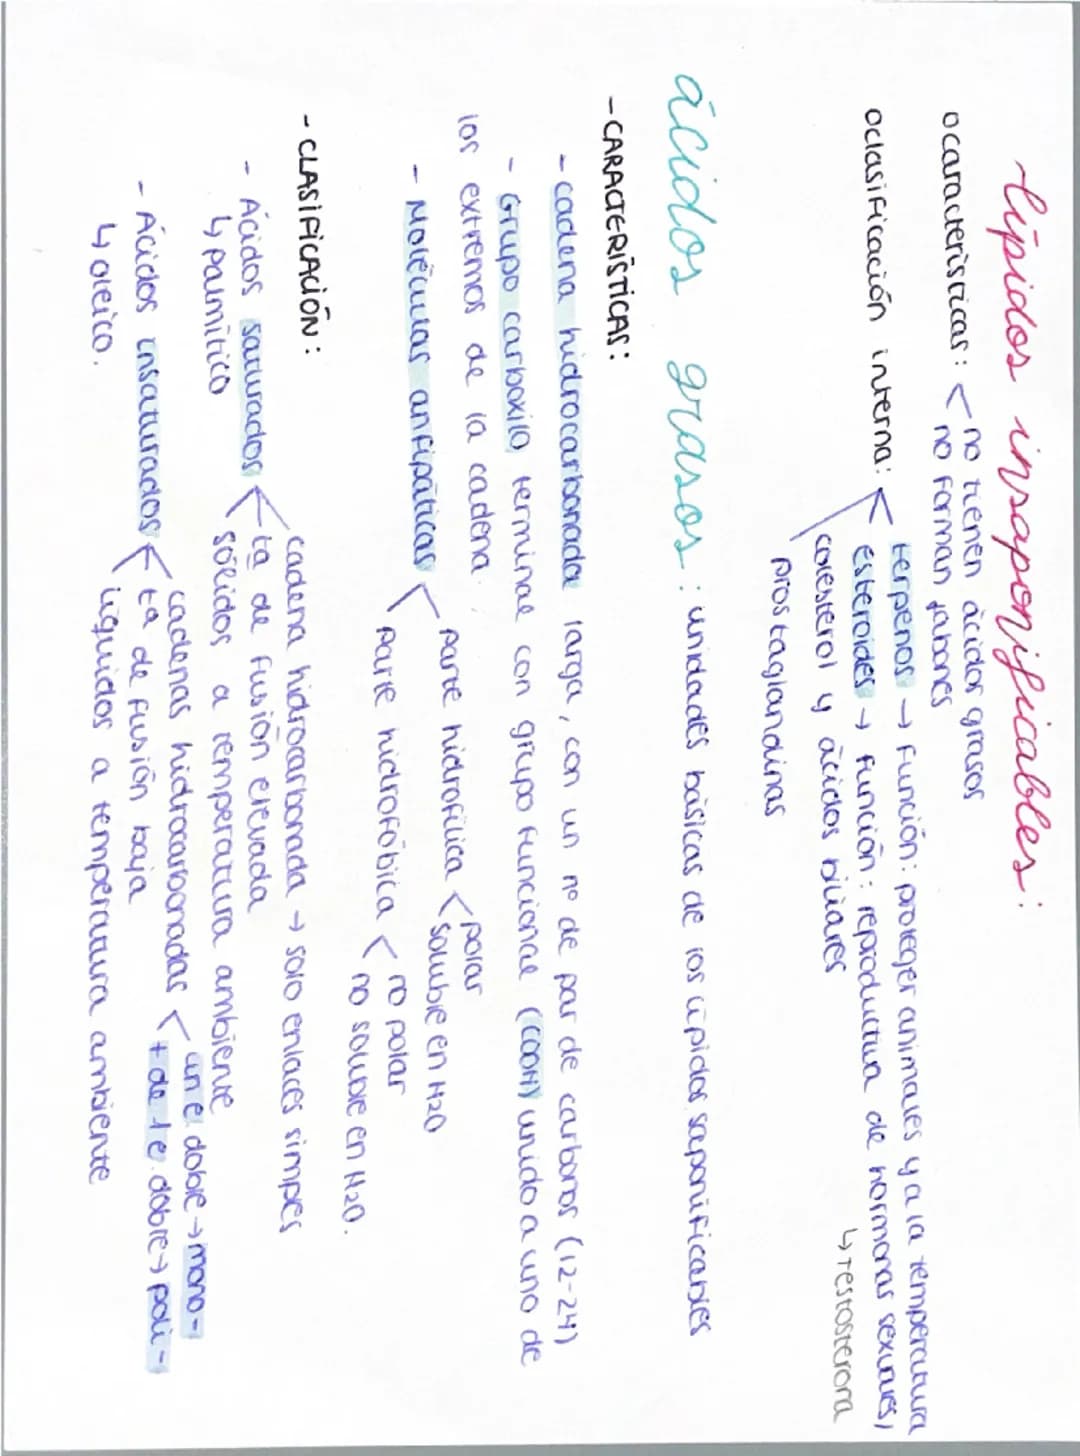 -lípidos insaponificables:
o características: < no tienen ácidos grasos
no forman jabones
o clasificación interna: < terpenos → función: proteger animales y a la temperatura
esteroides → función: reproductiva de hormonas sexuales,
↳ testosterona
colesterol y ácidos biliares
prostaglandinas
ácidos grasos: unidades básicas de los lípidos saponificables
-CARACTERÍSTICAS:
- cadena hidrocarbonada larga, con un nº de par de carbonos (12-24)
- Grupo carboxilo terminal con grupo funcional (COOH) unido a uno de
los extremos de la cadena.
- Moléculas anfipáticas < parte hidrofílica < polar
soluble en H2O
parte hidrofóbica < no polar
no soluble en H2O.
- CLASIFICACIÓN:
cadena hidrocarbonada → solo enlaces simpes
- Ácidos saturados ← tª de fusión elevada
↳ palmítico sólidos a temperatura ambiente
cadenas hidrocarbonadas < un e. doble → mono-
+ de 1 e. doble → poli-
- Ácidos insaturados ← tª de fusión baja
↳ oleico. líquidos a temperatura ambiente